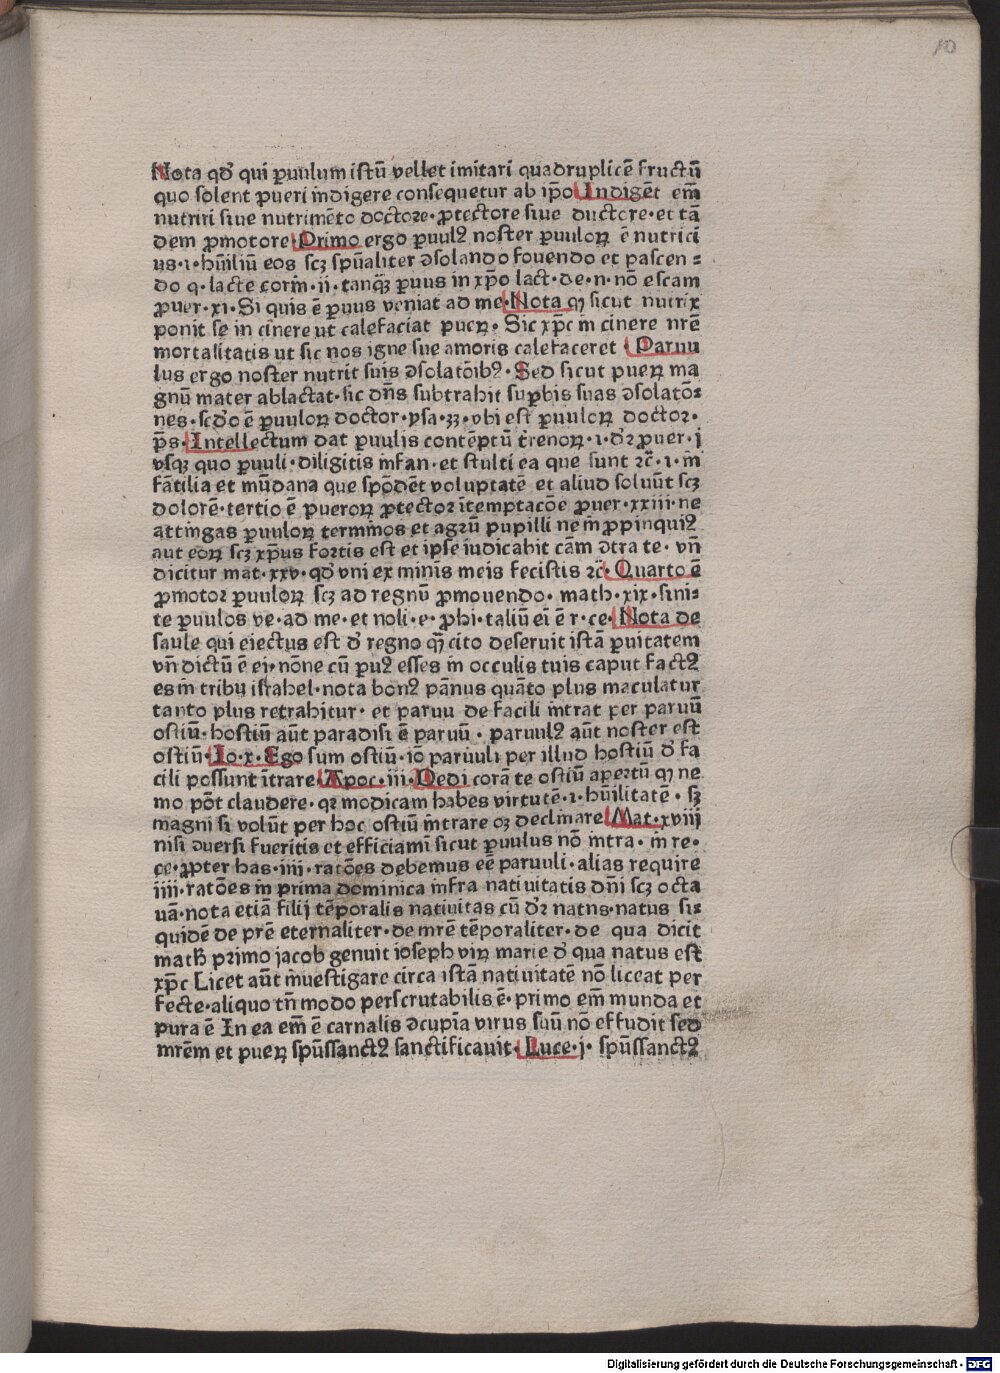 10
Nota qď qui ꝑuulum istū vellet imitari quadruplicē fructū
quo solent pueri indigere consequetur ab ip̄o Indigēt em̄
nutriri siue nutrimēto doctore·ꝓtectore siue ductore·et tā
dem ꝓmotore·Primo ergo ꝑuulꝰ noster ꝑuuloꝝ ē nutrici
us·i·hūiliū eos scꝫ spūaliter ꝯsolando fouendo et pascen⸗
do q·lacte corin̄·ii·tanqꝫ ꝑuus in xp̄o lact·de·n·nō escam
ꝓuer·xi·Si quis ē ꝑuus veniat ad me·Nota ꝙ sicut nutrix
ponit se in cinere ut calefaciat pueꝝ·Sic xp̄c in cinere nrē
mortalitatis ut sic nos igne sue amoris calefaceret·Paruu
lus ergo noster nutrit suis ꝯsolatōibꝰ·Sed sicut pueꝝ ma
gnū mater ablactat·sic dn̄s subtrahit suꝑbis suas ꝯsolatō⸗
nes·scďo ē ꝑuuloꝝ doctor·ysa·33·vbi est ꝑuuloꝝ doctor·
p̄s·Intellectum dat ꝑuulis contēptū t̄renoꝝ·i·dꝛ̄ ꝓuer·j
vsqꝫ quo ꝑuuli·diligitis infan·et stulti ea que sunt ꝛc̄·i·in
fātilia et mūdana que spōdēt voluptatē et aliud soluūt scꝫ
dolorē·tertio ē pueroꝝ ꝓtector ītemptacōe ꝓuer·xxiii·ne
attingas ꝑuuloꝝ terminos et agrū pupilli ne in ꝓpinquiꝰ
aut eoꝝ scꝫ xp̄us fortis est et ipse iudicabit cām ꝯtra te·vn̄
dicitur mat·xxv·qď vni ex minīs meis fecistis ꝛc̄·Quarto ē
ꝓmotor ꝑuuloꝝ scꝫ ad regnū ꝓmouendo·math·xix·sini⸗
te ꝑuulos ve·ad me·et noli·e·ꝓhi·taliū ei ē r·ce·Nota de
saule qui eiectus est ď regno qꝫ cito deseruit istā ꝑuitatem
vn̄ dictū ē ei·nōne cū ꝑuꝰ esses in occulis tuis caput factꝰ
es in tribu israhel·nota bonꝰ pānus quāto plus maculatur
tanto plus retrahitur·et paruu de facili intrat per paruū
ostiū·hostiū aūt paradisi ē paruū·paruulꝰ aūt noster est
ostiū·Io·x·Ego sum ostiū·iō paruuli per illud hostiū ď fa
cili possunt ītrare·Apoc·iii·Dedi corā te ostiū apertū ꝙ ne
mo pōt claudere·qꝛ modicam habes virtutē·i·hūilitatē·sꝫ
magni si volūt per hoc ostiū intrare oꝫ declinare Mat·xviij
nisi ꝯuersi fueritis et efficiamī sicut ꝑuulus nō intra·in re·
ce·ꝓpter has·iiij·ratōes debemus eē paruuli·alias require
iiij·ratōes in prima dominica infra natiuitatis dn̄i scꝫ octa
uā·nota etiā filij tēporalis natiuitas cū dꝛ̄ natus·natus si⸗
quidē de pr̄e eternaliter·de mr̄e tēporaliter·de qua dicit
math̄ primo jacob genuit ioseph viꝝ marie ď qua natus est
xp̄c Licet aūt inuestigare circa istā natiuitatē nō liceat per
fecte·aliquo tn̄ modo perscrutabilis ē·primo em̄ munda et
pura ē In ea em̄ ē carnalis ꝯcupīa virus suū nō effudit sed
mr̄em et pueꝝ spūssanctꝰ sanctificauit·Luce·j·spūssanctꝰ
Digitalisierung gefördert durch die Deutsche Forschungsgemeinschaft - DFG